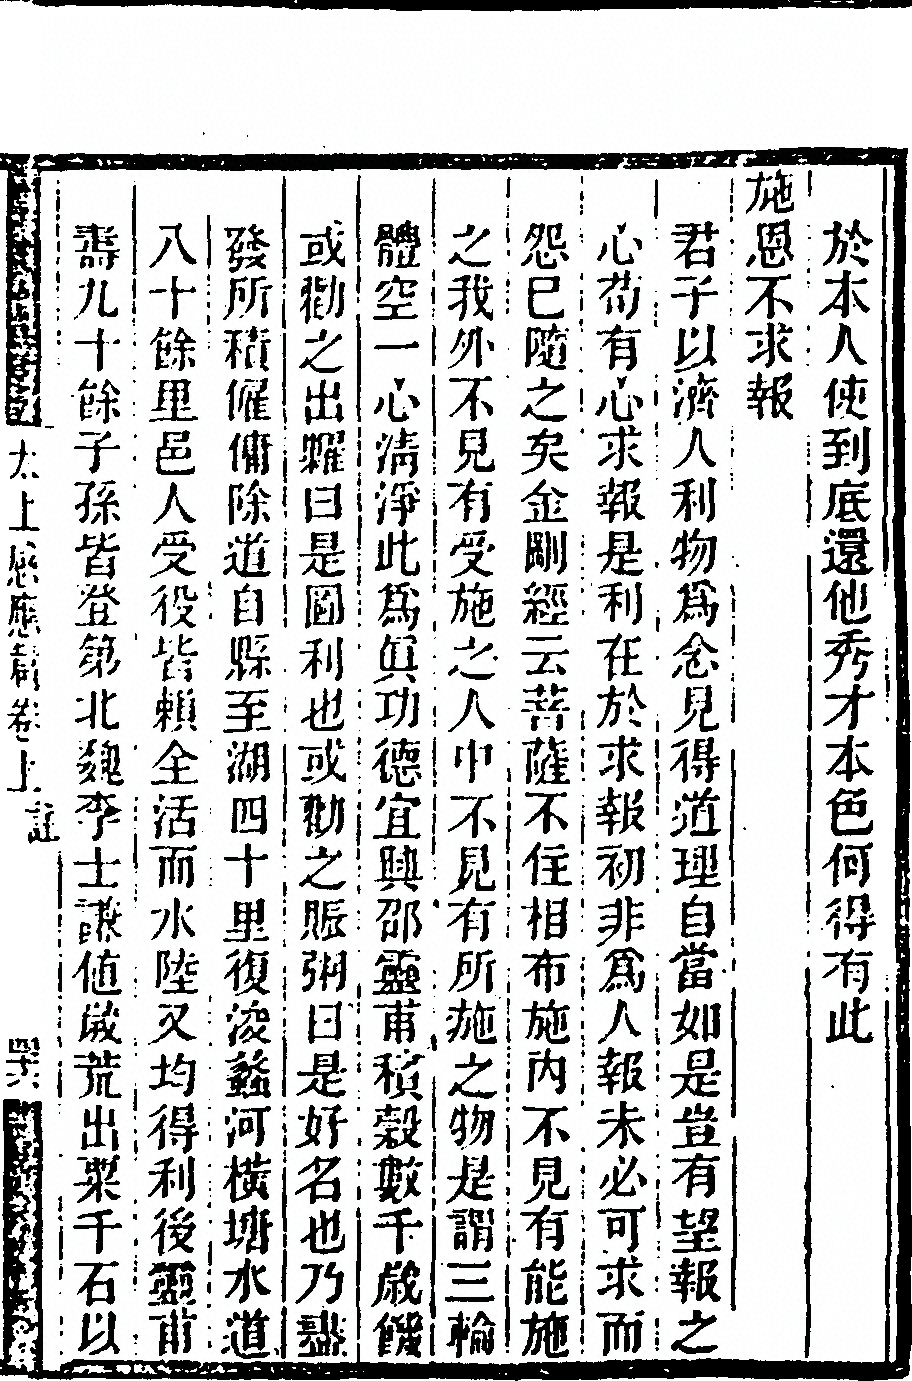 於本人使到底還他秀才本色何得有此
施恩不求報
君子以濟人利物爲念見得道理自當如是豈有望報之
心苟有心求報是利在於求報初非爲人報未必可求而
怨已隨之矣金剛經云菩薩不住相布施內不見有能施
之我外不見有受施之人中不見有所施之物是謂三輪
體空一心清淨此爲眞功德宜興邵靈甫積穀數千歲饑
或勸之出糶曰是圖利也或勸之賑粥曰是好名也乃盡
發所積僱傭除道自縣至湖四十里復浚蠡河橫塘水道
八十餘里邑人受役皆賴全活而水陸又均得利後靈甫
壽九十餘子孫皆登第北魏李士謙值歲荒出粟千石以
太上感應篇卷上 註